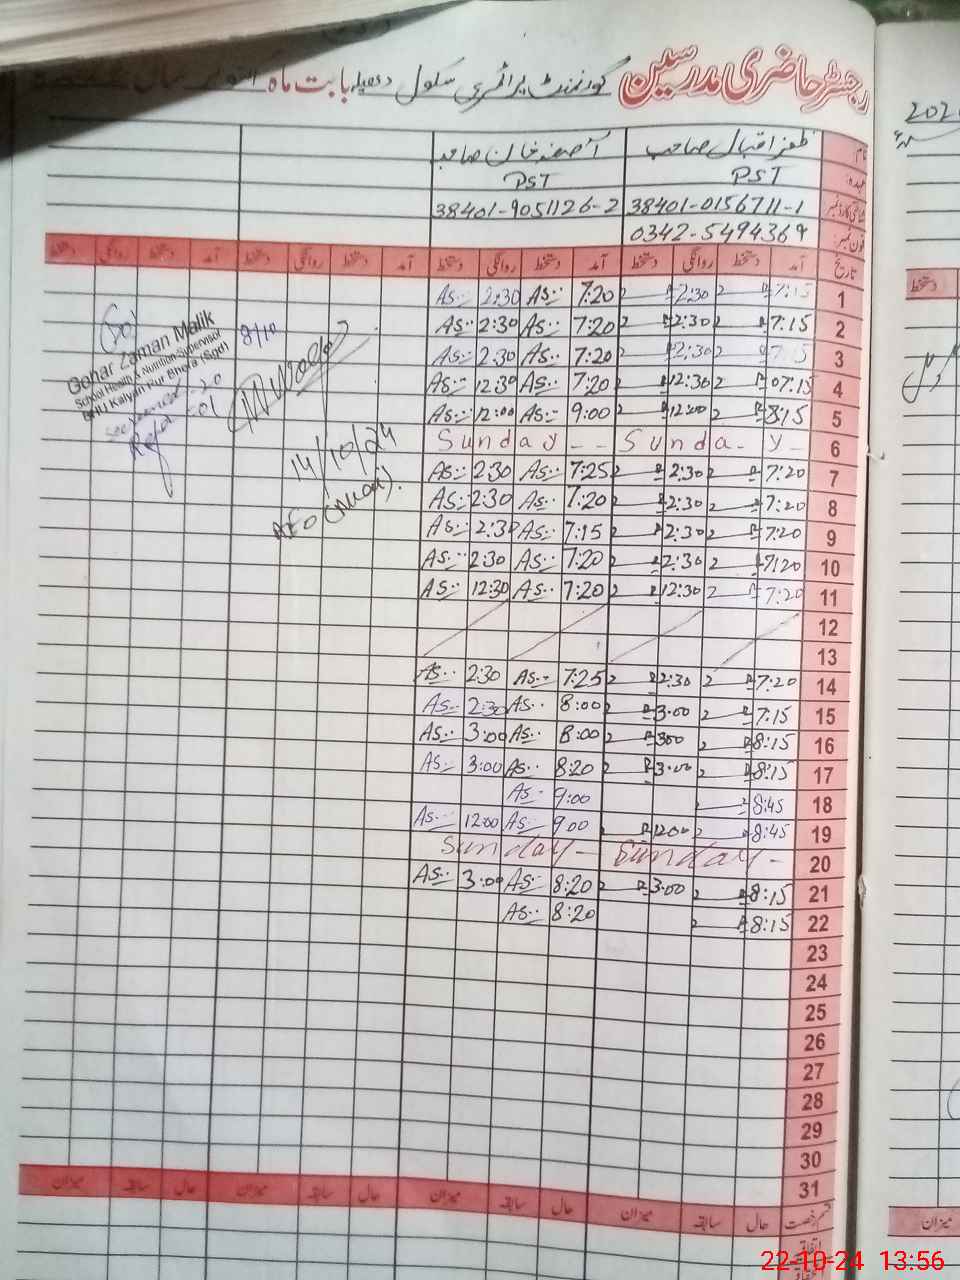 رجسٹر حاضری مدرسین گورنمنٹ پرائمری سکول بابت ماہ اکتوبر سال
نام: ظفر اقبال صاحب آصف خان صاحب
عہدہ: PST PST
شناختی کارڈ نمبر 38401-0156711-1 38401-9051126-2
فون نمبر: 0342-5494369
تاریخ آمد دستخط روانگی دستخط آمد دستخط روانگی دستخط آمد دستخط روانگی دستخط آمد دستخط روانگی دستخط
1 7:15 2:30 7:20 As 2:30 As
2 7:15 2:30 7:20 As 2:30 As
3 7:15 2:30 7:20 As 2:30 As
4 07:15 12:30 7:20 As 12:30 As
5 8:15 12:00 9:00 As 12:00 As
6 Sunday -- Sunda-y-
7 7:20 2:30 7:25 As 2:30 As
8 7:20 2:30 7:20 As 2:30 As
9 7:20 2:30 7:15 As 2:30 As
10 7:20 2:30 7:20 As 2:30 As
11 7:20 12:30 7:20 As 12:30 As
12
13
14 7:20 2:30 7:25 As 2:30 As
15 7:15 3:00 8:00 As 2:30 As
16 8:15 300 8:00 As 3:00 As
17 8:15 3:00 8:20 As 3:00 As
18 8:45 9:00 As
19 8:45 1200 900 As 1200 As
20 Sunday - Sunday -
21 8:15 3:00 8:20 As 3:00 As
22 8:15 8:20 As
23
24
25
26
27
28
29
30
31
قسم رخصت حال سابقہ میزان حال سابقہ میزان حال سابقہ میزان حال سابقہ میزان
اتفاقیہ
8/10
Gohar Zaman Malik
School Health & Nutrition Supervisor
BHU Kalyan Pur Bhera (Sgd)
Screened - 20
Refer - 01
14/10/24
AEO
دستخط
میزان
22-10-24 13:56